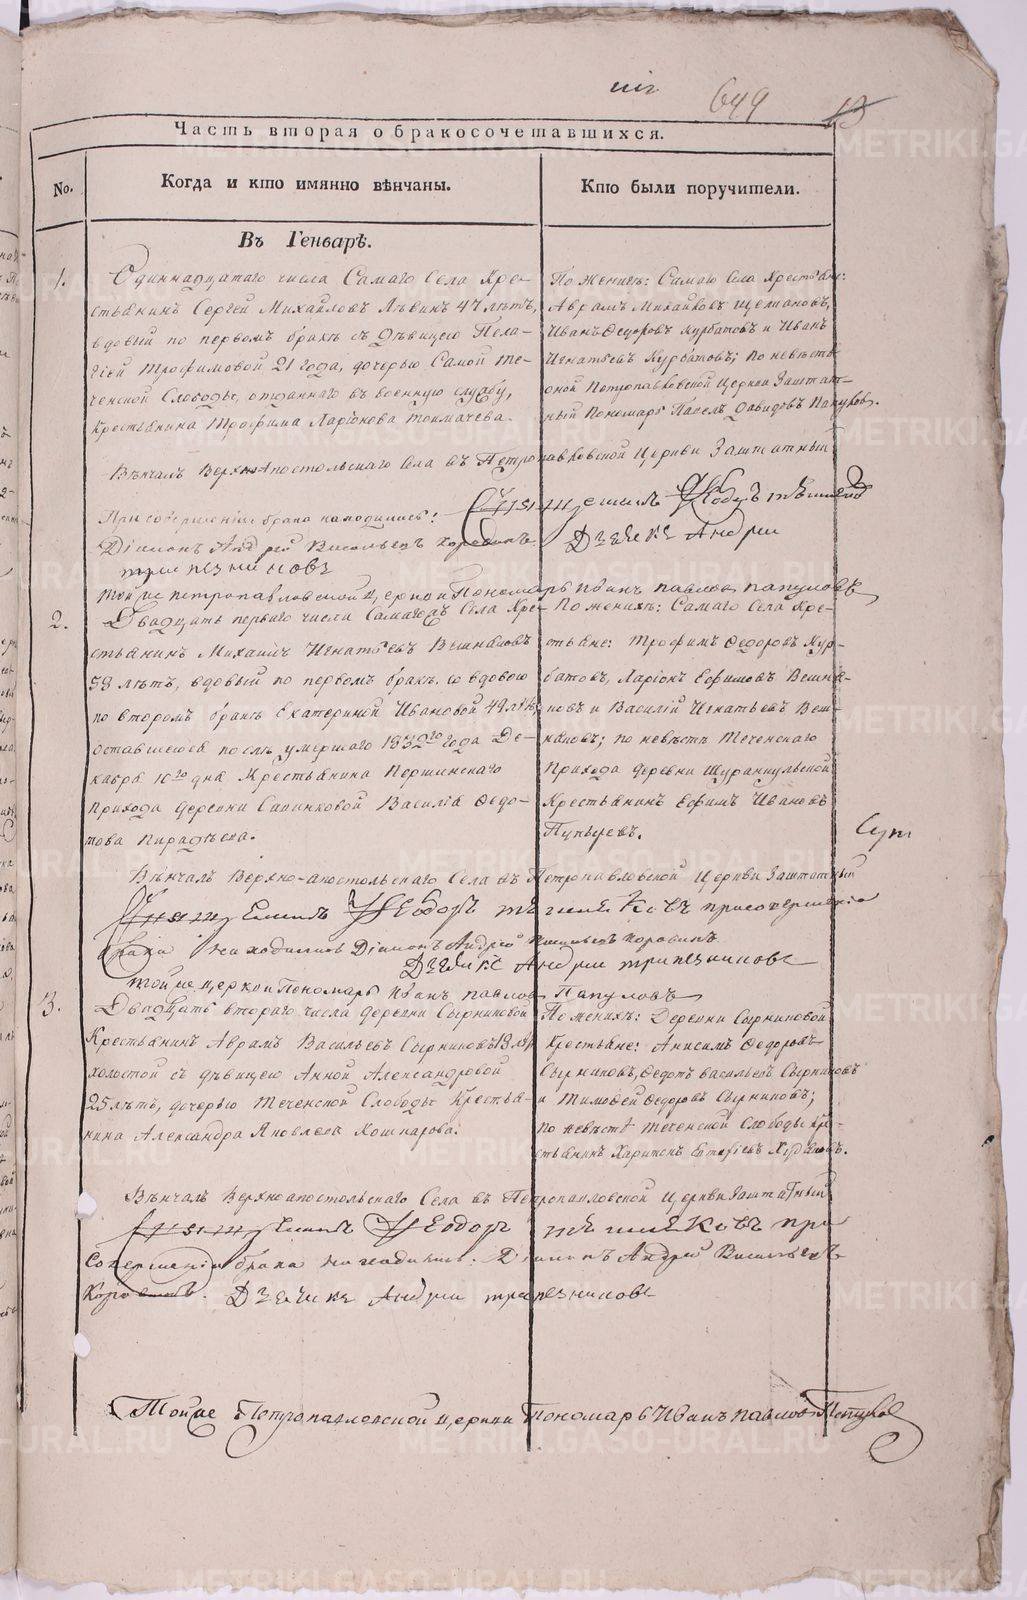 649
13
Часть вторая о бракосочетавшихся.
No.
Когда и кто имянно вѣнчаны.
Кто были поручители.
Въ Генварѣ.
1.
Одиннадцатаго числа Самаго Села Кре-
стьянинъ Сергей Михайловъ 47 лѣтъ,
вдовый по первомъ бракѣ съ дѣвицею Пела-
гіей Трофимовой 21 года, дочерью Самой Те-
ченской Слободы, отданнаго въ военную службу,
Крестьянина Трофима Ларіонова Толмачева.
По женихѣ: Самаго Села Крестьяне:
Аврамъ Михайловъ
Иванъ Федоровъ Курбатовъ и Иванъ
Игнатьевъ Курбатовъ; по невѣстѣ
оной Петропавловской Церкви Заштат-
ный Пономарь Павелъ Давидовъ Папуловъ.
Вѣнчалъ Верхнеапостольскаго Села въ Петропавловской Церкви Заштатный
При совершеніи брака находились:
Діаконъ Андрей Васильевъ Коровинъ
Дьячекъ Андрей
трапезниковъ
той же петропавловской церкви Пономарь Иванъ павловъ папуловъ
2.
Двадцать перваго числа Самаго Села Кре-
стьянинъ Михаилъ Игнатьевъ Вешняковъ
59 лѣтъ, вдовый по первомъ бракѣ, со вдовою
по второмъ бракѣ Екатериной Ивановой 49 лѣтъ,
оставшеюся послѣ умершаго 1832го года Де-
кабря 10го дня Крестьянина Першинскаго
прихода деревни Василія Федо-
това
По женихѣ: Самаго Села Кре-
стьяне: Трофимъ Федоровъ Кур-
батовъ, Ларіонъ Ефимовъ Вешня-
ковъ и Василій Игнатьевъ Веш-
няковъ; по невѣстѣ Теченскаго
прихода деревни Шуранкульской
Крестьянинъ Ефимъ Ивановъ
Пупыревъ.
Вѣнчалъ Верхно-апостольскаго Села въ Петропавловской Церкви Заштатный
Священникъ Феодоръ присовершеніи
брака находились Діаконъ Андрей Васильевъ Коровинъ
Дьячекъ Андрей трапезниковъ
той же церкви Пономарь Иванъ павловъ Папуловъ
3.
Двадцать втораго числа деревни Сыркиновой
Крестьянинъ Аврамъ Васильевъ Сыркиновъ 18 лѣтъ
холостой съ дѣвицею Анной Александровой
25 лѣтъ, дочерью Теченской Слободы Крестья-
нина Александра Яковлева Кошкарова.
По женихѣ: Деревни Сыркиновой
Крестьяне: Анисимъ Федоровъ
Сыркиновъ, Федотъ васильевъ Сыркиновъ
и Тимофей Федоровъ Сыркиновъ;
по невѣстѣ Теченской Слободы Кре-
стьянинъ Харитонъ Худяковъ.
Вѣнчалъ Верхноапостольскаго Села въ Петропавловской Церкви Заштатный
Священникъ Феодоръ при
Совершеніи брака находились: Діаконъ Андрей Васильевъ
Коровинъ. Дьячекъ Андрей трапезниковъ
Той же Петропавловской церкви Пономарь Иванъ павловъ Папуловъ
METRIKI.GASO-URAL.RU